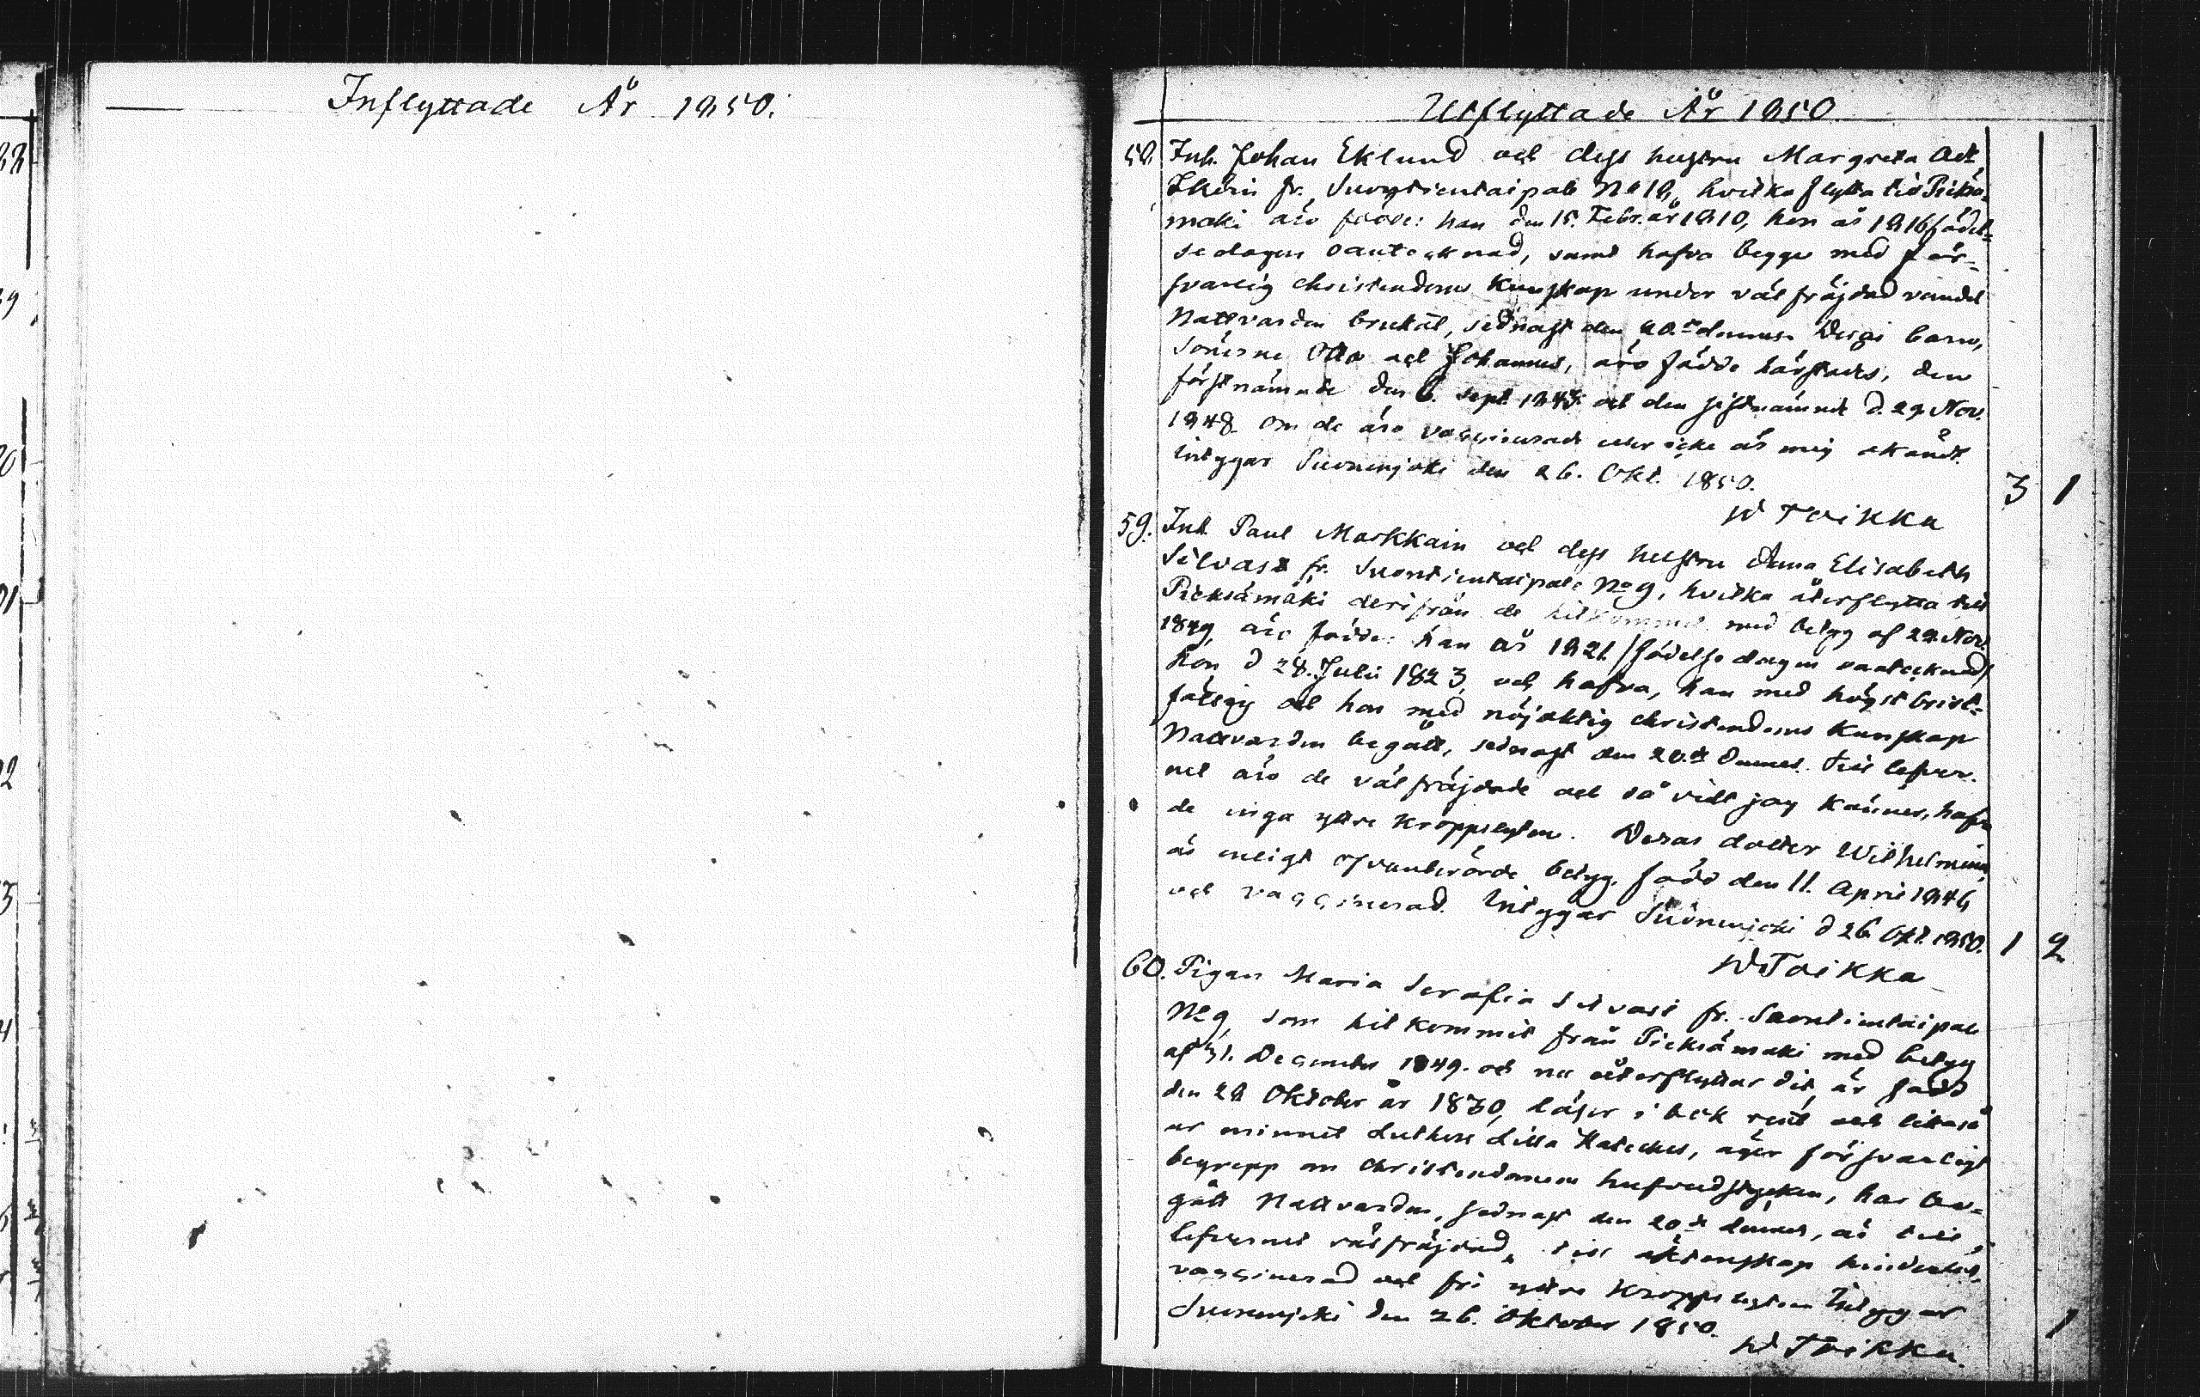 Inflyttade År 1850.
Utflyttade År 1850
58. Inh. Johan Eklund och dess hustru Margreta
fr. Suontientaipale No 18, hvilka flytta till Pieksä-
mäki äro födde: han den 15. Febr. år 1810, hon år 1816 födel-
sedagen oantecknad, samt hafva begge med för-
svarlig christendoms kunskap under väl fräjdad vandel
Nattvarden brukat, sednast den 20.de dennes. Deras barn,
sönerne Otto och Johannes, äro födde härstädes, den
förstnämnde den 6. Sept. 1845 och den sistnämnde d. 29 Nov.
1848. Om de äro vaccinerade eller icke är mig okändt.
Intygar Suonenjoki den 26. Okt. 1850.
3 1
W Toikka
59. Inh. Paul Markkain och dess hustru Anna Elisabeth
Silvast fr. Suontientaipale No 9, hvilka återflytta till
Pieksämäki derifrån de hitkommit med betyg af 22 Nov.
1849, äro födde: han år 1821 /födelse dagen oantecknad/
hon d 28. Juli 1823, och hafva, han med högst brist-
fällig och hon med nöjaktig christendoms kunskap
Nattvarden begått, sednast den 20.de dennes. Till lefver-
net äro de välfräjdade och så vidt jag känner, hafva
de inga yttre kroppslyten. Deras dotter Wilhelmina
är enligt ofvanberörde betyg född den 11. April 1846
och vaccinerad. Intygar Suonenjoki d 26 Okt. 1850. 1 2
W Toikka
60. Pigan Maria Serafia Silvast fr. Suontientaipale
No 9, som hit kommit från Pieksämäki med betyg
af 31. December 1849. och nu återflyttar dit, är född
den 28 Oktober år 1830, läser i bok rent och likaså
ur minnet Luthers Lilla Kateches, äger försvarligt
begrepp om christendomens hufvudstycken, har be-
gått Nattvarden, sednast den 20de dennes, är till
lefvernet välfräjdad, till äktenskap hinderlös,
vaccinerad och fri yttre kroppslyten Intygar
Suonenjoki den 26. Oktober 1850.
1
W Toikka.